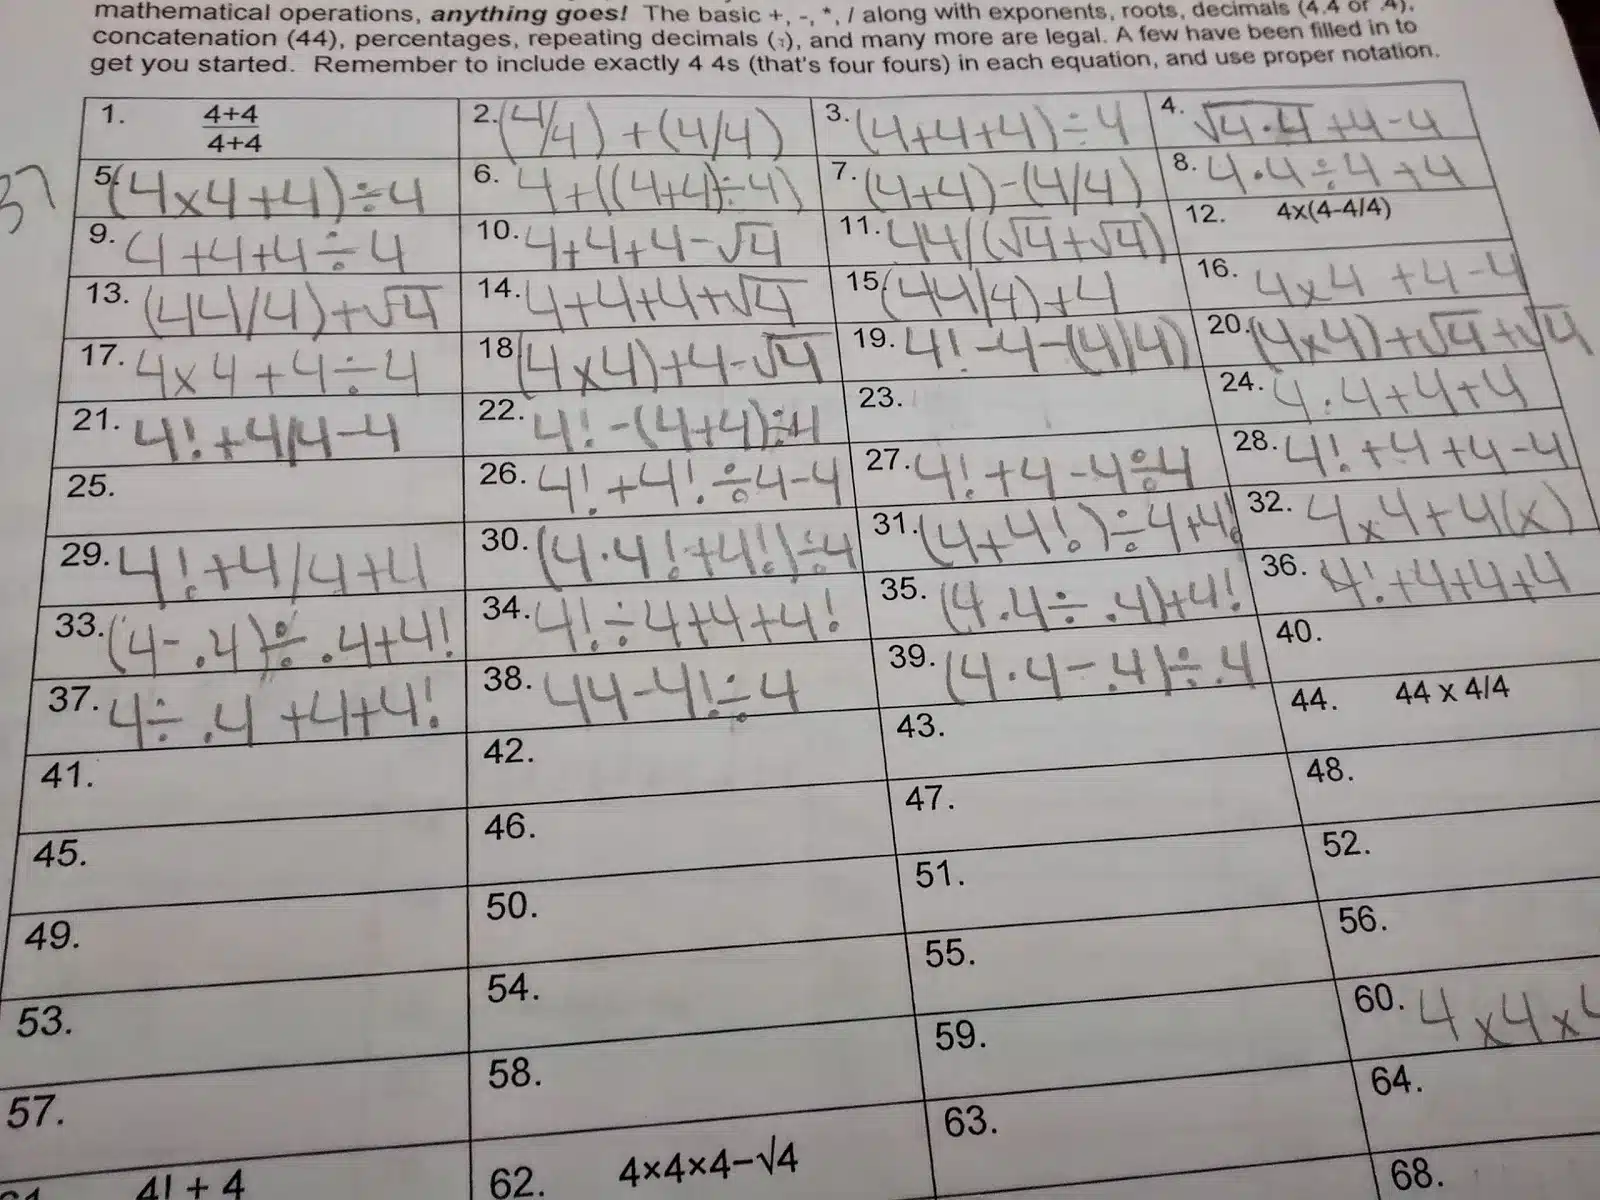 mathematical operations, anything goes! The basic +, -, *, / along with exponents, roots, decimals (4.4 or .4),
concatenation (44), percentages, repeating decimals (), and many more are legal. A few have been filled in to
get you started. Remember to include exactly 4 4s (that's four fours) in each equation, and use proper notation.
37
1. 4+4
4+4
2. (4/4) + (4/4)
3. (4+4+4)÷4
4. √4·4 +4-4
5. (4x4+4)÷4
6. 4+((4+4)÷4)
7. (4+4)-(4/4)
8. 4·4÷4+4
9. 4+4+4÷4
10. 4+4+4-√4
11. 44/(√4+√4)
12. 4x(4-4/4)
13. (44/4)+√4
14. 4+4+4+√4
15. (44/4)+4
16. 4x4 +4-4
17. 4x4+4÷4
18. (4x4)+4-√4
19. 4!-4-(4/4)
20. (4x4)+√4+√4
21. 4!+4/4-4
22. 4!-(4+4)÷4
23.
24. 4·4+4+4
25.
26. 4!+4!÷4-4
27. 4!+4-4÷4
28. 4!+4+4-4
29. 4!+4/4+4
30. (4·4!+4!)÷4
31. (4+4!)÷4+4!
32. 4x4+4(x)
33. (4-.4)÷.4+4!
34. 4!÷4+4+4!
35. (4.4÷.4)+4!
36. 4!+4+4+4
37. 4÷.4+4+4!
38. 44-4!÷4
39. (4·4-.4)÷.4
40.
41.
42.
43.
44. 44 x 4/4
45.
46.
47.
48.
49.
50.
51.
52.
53.
54.
55.
56.
57.
58.
59.
60. 4x4x4
4! + 4
62. 4×4×4−√4
63.
64.
68.